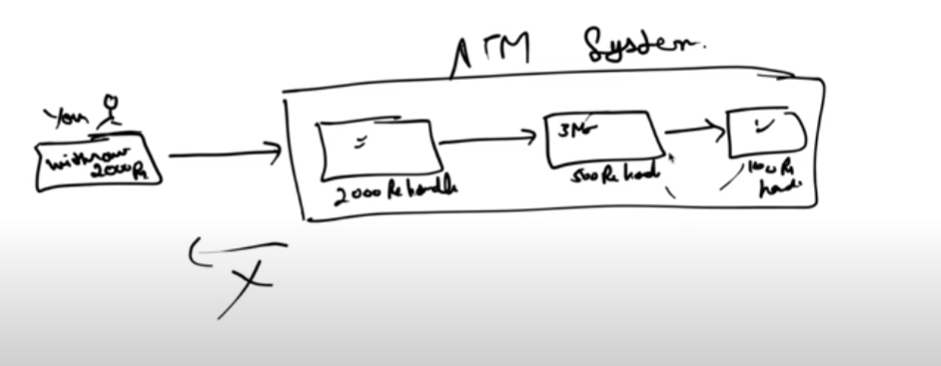 ATM System.
You
withraw
2000 Rs
2000 Rs handle
500 Rs hand
100 Rs
hand